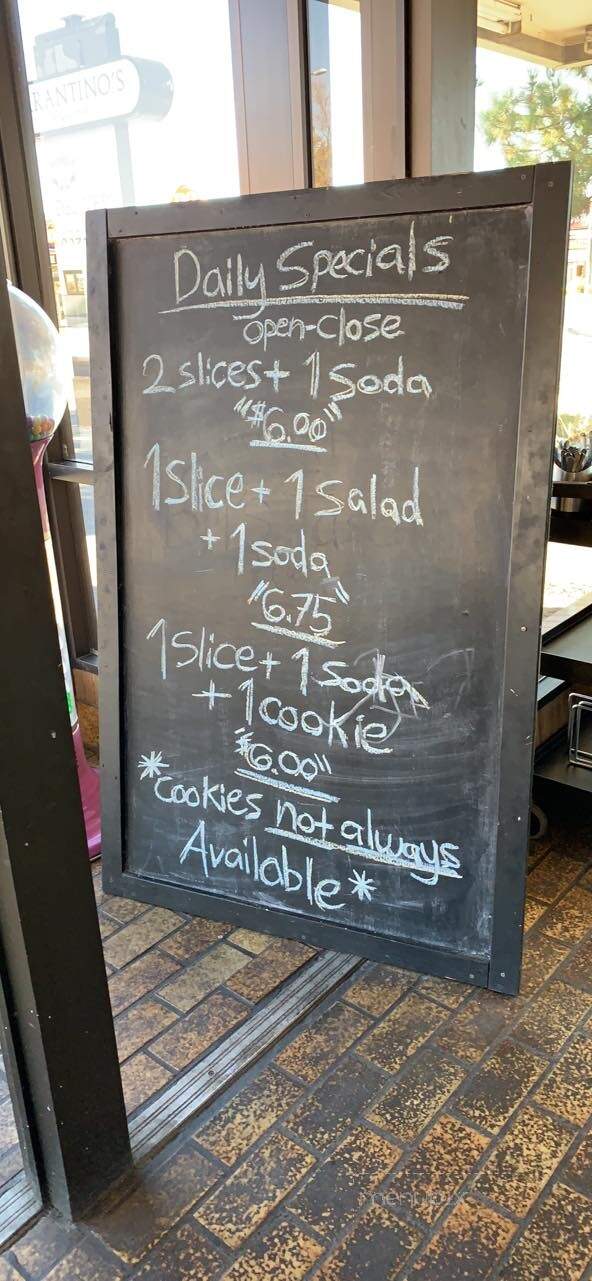 RANTINO'S
Daily Specials
open-close
2 slices + 1 Soda
"$6.00"
1 Slice + 1 Salad
+ 1 soda
"6.75"
1 Slice + 1 Soda
+ 1 cookie
"$6.00"
*Cookies not always
Available*
menupix